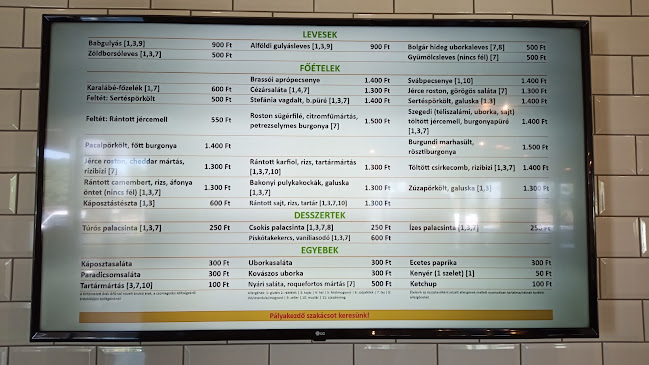 LEVESEK
Babgulyás [1,3,9] 900 Ft Alföldi gulyásleves [1,3,9] 900 Ft Bolgár hideg uborkaleves [7,8] 500 Ft
Zöldborsóleves [1,3,7] 500 Ft Gyümölcsleves (nincs fél) [7] 500 Ft
FŐÉTELEK
Brassói aprópecsenye 1.400 Ft Svábpecsenye [1,10] 1.400 Ft
Karalábé-főzelék [1,7] 600 Ft Cézársaláta [1,4,7] 1.300 Ft Jérce roston, görögös saláta [7] 1.300 Ft
Feltét: Sertéspörkölt 500 Ft Stefánia vagdalt, b.püré [1,3,7] 1.400 Ft Sertéspörkölt, galuska [1.3] 1.400 Ft
Feltét: Rántott jércemell 550 Ft Roston sügérfilé, citromfűmártás, petrezselymes burgonya [7] 1.500 Ft Szegedi (téliszalámi, uborka, sajt)
töltött jércemell, burgonyapüré 1.400 Ft
[1,3,7]
Pacalpörkölt, főtt burgonya 1.400 Ft Burgundi marhasült,
rösztiburgonya 1.500 Ft
Jérce roston, cheddar mártás, 1.300 Ft Rántott karfiol, rizs, tartármártás 1.300 Ft Töltött csirkecomb, rizibizi [1,3,7] 1.400 Ft
rizibizi [7] [1,3,7,10]
Rántott camembert, rizs, áfonya 1.300 Ft Bakonyi pulykakockák, galuska 1.300 Ft Zúzapörkölt, galuska [1,3] 1.300 Ft
öntet (nincs fél) [1,3,7] [1,3,7]
Káposztástészta [1,3] 600 Ft Rántott sajt, rizs, tartár [1,3,7,10] 1.300 Ft
DESSZERTEK
Túrós palacsinta [1,3,7] 250 Ft Csokis palacsinta [1,3,7,8] 250 Ft Ízes palacsinta [1,3,7] 250 Ft
Piskótakekercs, vaníliasodó [1,3,7] 600 Ft
EGYEBEK
Káposztasaláta 300 Ft Uborkasaláta 300 Ft Ecetes paprika 300 Ft
Paradicsomsaláta 300 Ft Kovászos uborka 300 Ft Kenyér (1 szelet) [1] 50 Ft
Tartármártás [3,7,10] 100 Ft Nyári saláta, roquefortos mártás [7] 500 Ft Ketchup 100 Ft
Pályakezdő szakácsot keresünk!
LG